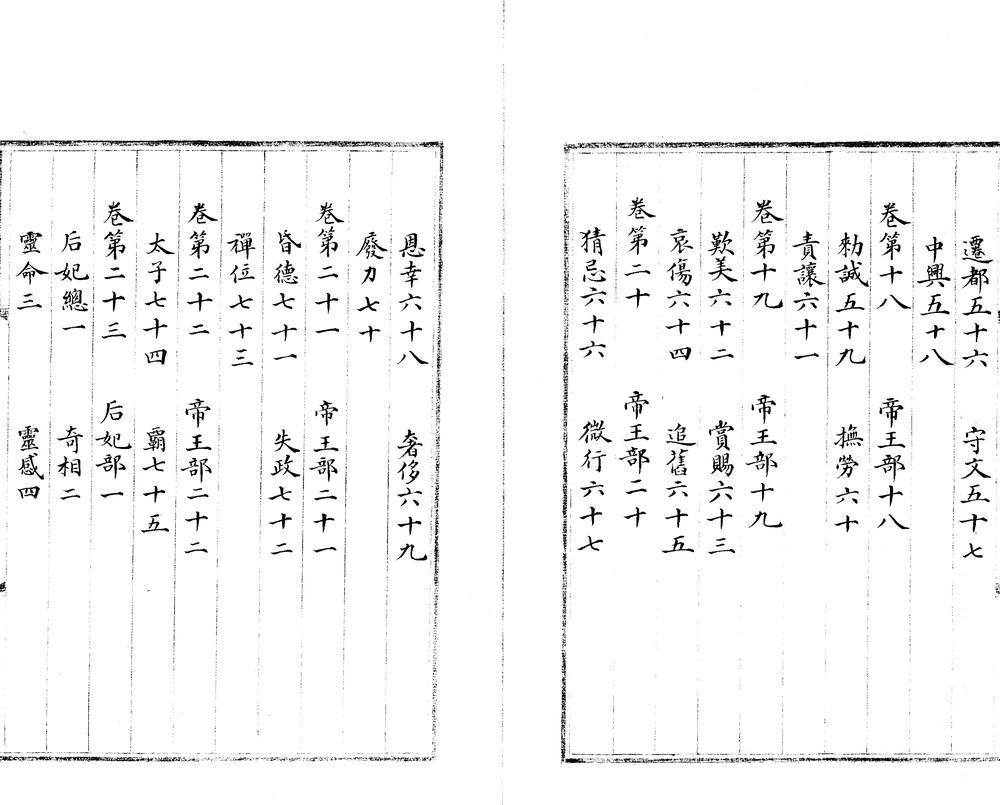 遷都五十六　守文五十七
中興五十八
卷第十八　帝王部十八
勑誡五十九　撫勞六十
責讓六十一
卷第十九　帝王部十九
歎美六十二　賞賜六十三
哀傷六十四　追舊六十五
卷第二十　帝王部二十
猜忌六十六　微行六十七
恩幸六十八　奢侈六十九
廢力七十
卷第二十一　帝王部二十一
昏德七十一　失政七十二
禪位七十三
卷第二十二　帝王部二十二
太子七十四　霸七十五
卷第二十三　后妃部一
后妃總一　奇相二
靈命三　靈感四